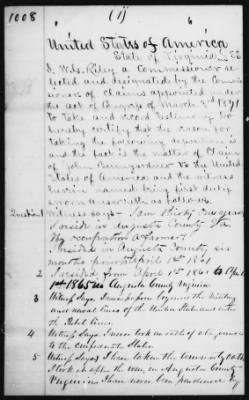 1008
(1)
6
United States of America
State of Virginia SS
I, Wm. Riley a Commissioner se
lected and designated by the Commis
sioners of Claims appointed under
the act of Congress of March 3rd 1871
to take and record testimony do
hereby certify that the reason for
taking the following deposition is
and the fact is the matter of Claim
of John Bumgardner vs the United
States of America and the witness
herein named being first duly
sworn answereth as follows.
Question 1 Witness says - I am thirty
I reside in Augusta County Va
My occupation A farmer
I resided in Augusta County six
months prior to April 1st 1861
2 I resided from April 1st 1861 to April
1st 1865 in Augusta County Virginia
3 Witness Says I
and naval lines of the United States and into
the Rebel lines
4 Witness Says I never took an oath of allegiance
to the Confederate States
5 Witness Says I have taken the amnesty oath
I took it after the war in Augusta County
Virginia I have never been